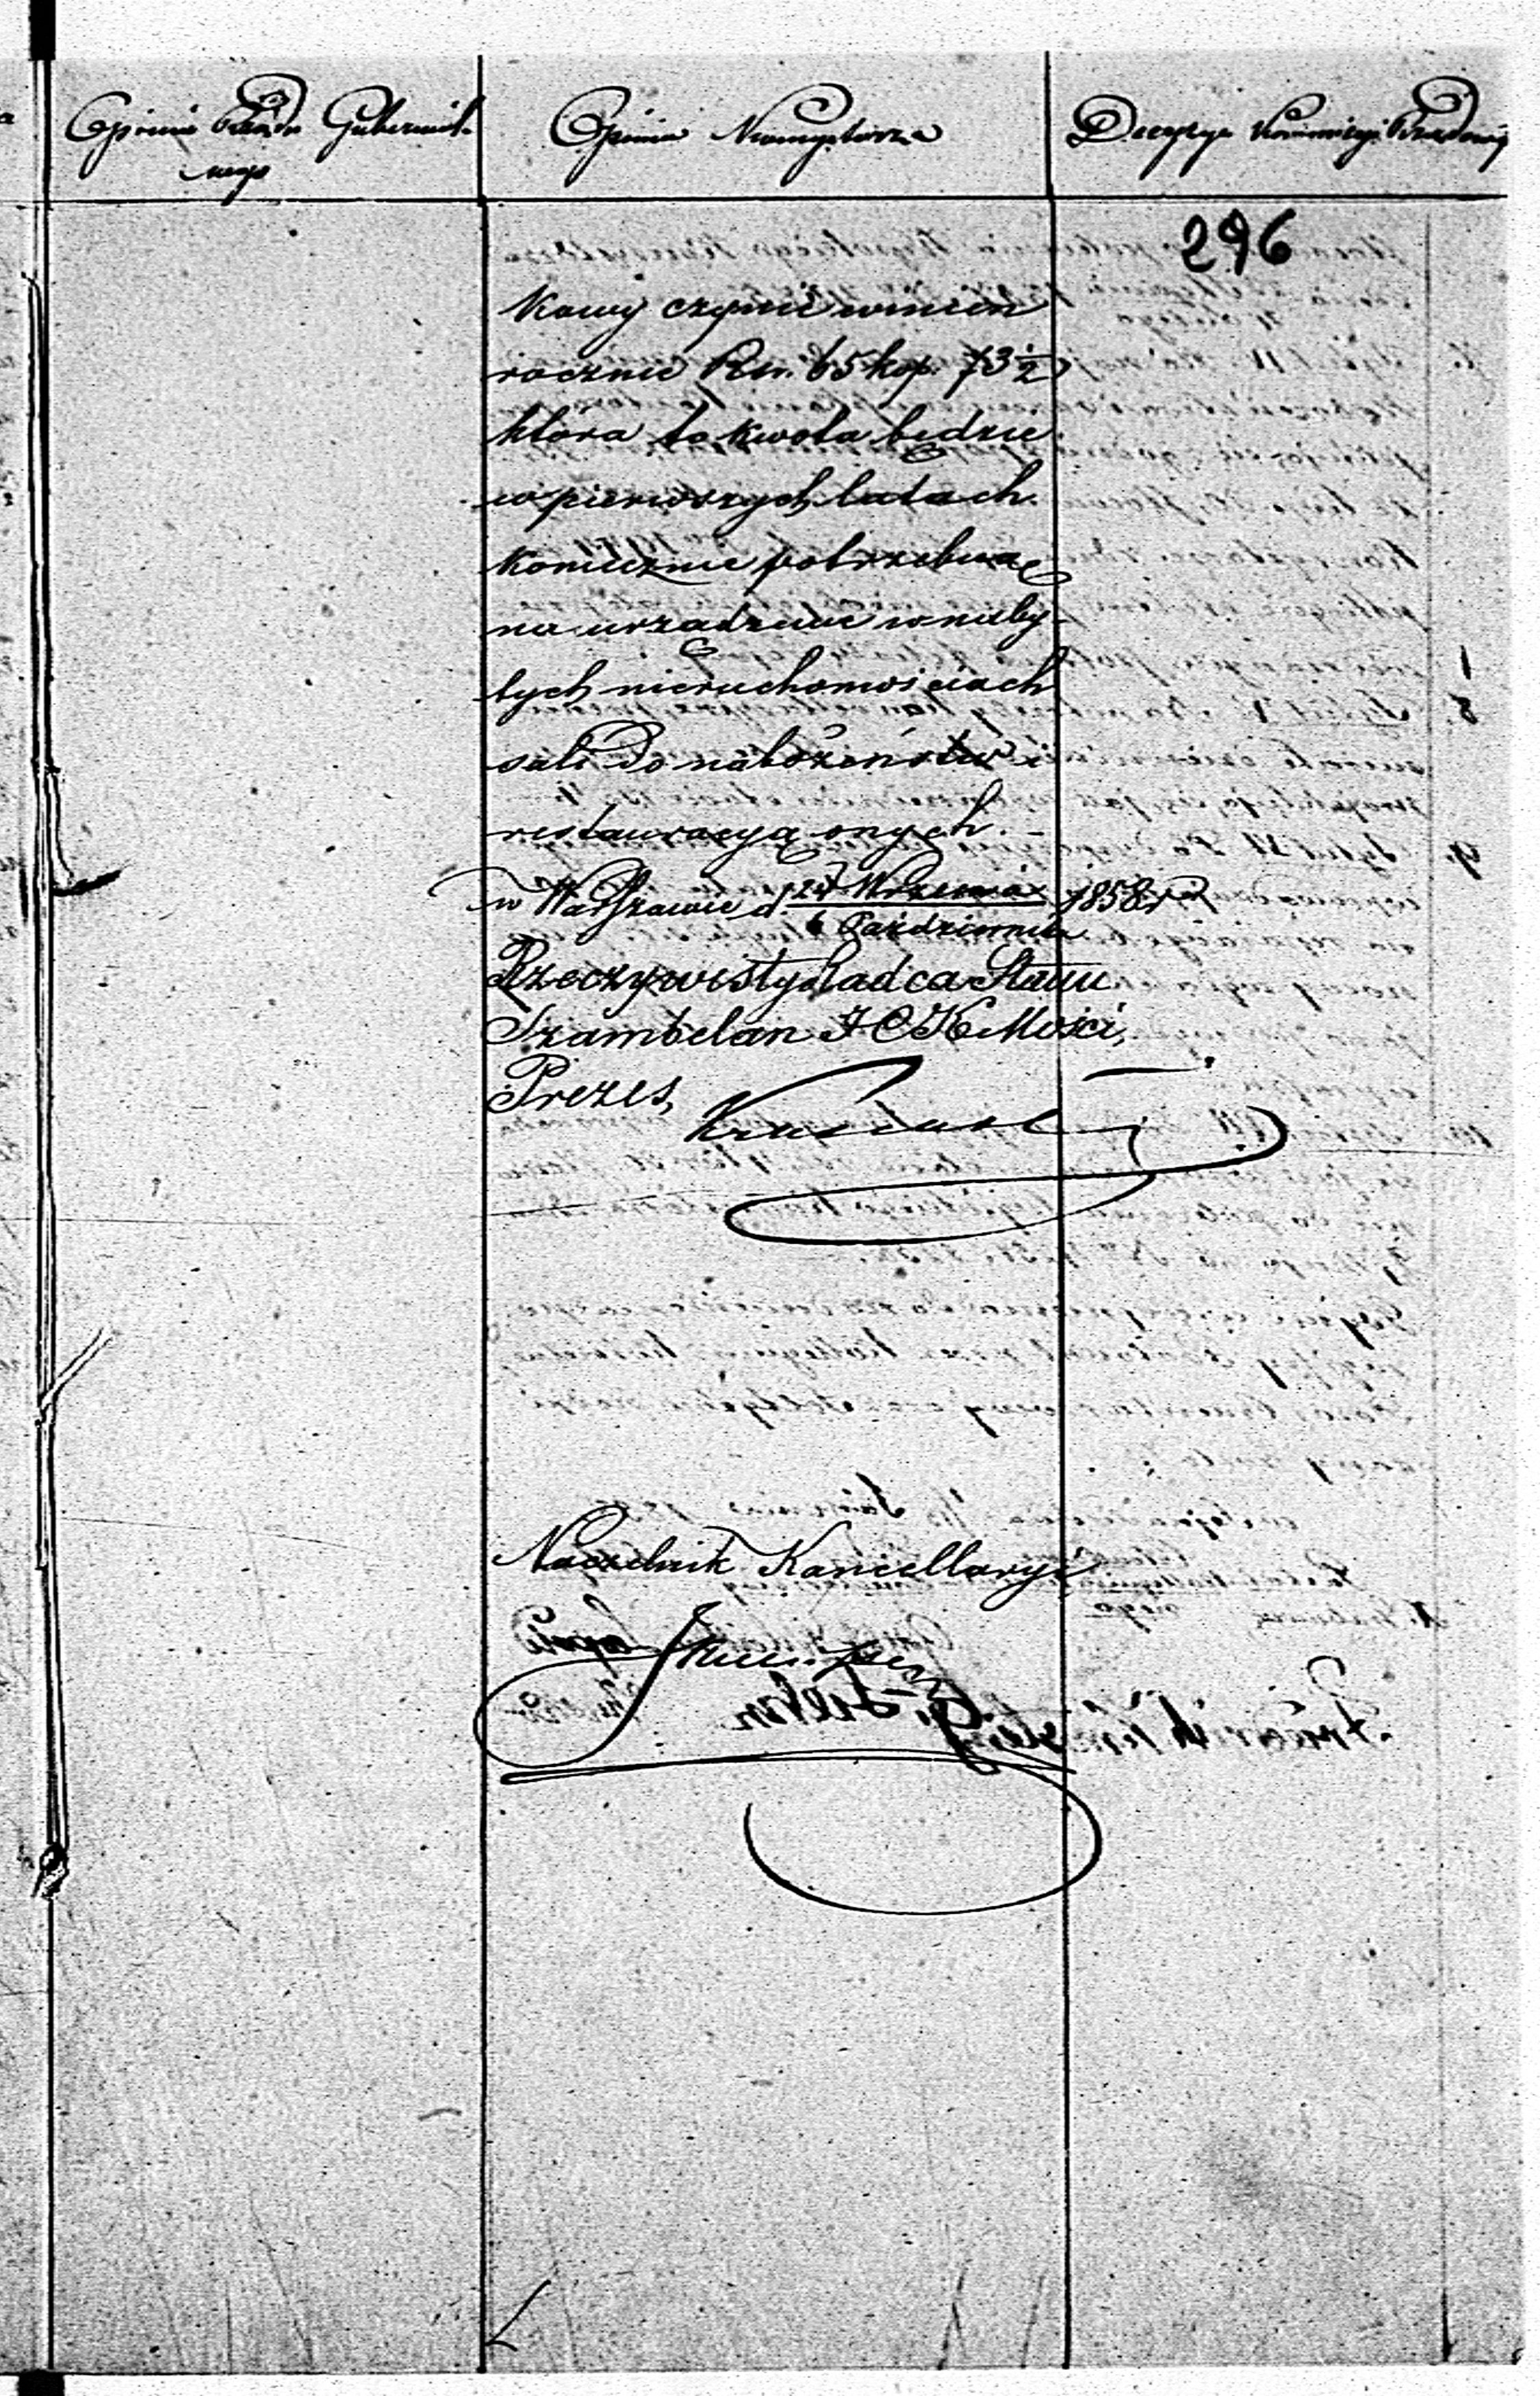 Opinia Rządu Gubernial-
nego
Opinia Konsystorza
Decyzya Kommissyi Rządowej
296
kowy czynić winien
rocznie Rsr. 65 kop. 73 1/2
która to kwota będzie
w pierwszych latach
koniecznie potrzebną
na urządzenie w naby-
tych nieruchomościach
sali do nabożeństw i
restauracyą onych. -
w Warszawie d. 24 Września / 6 Października 1858 r.
Rzeczywisty Radca Stanu
Szambelan J C K Mości,
Prezes,
Naczelnik Kancellaryi